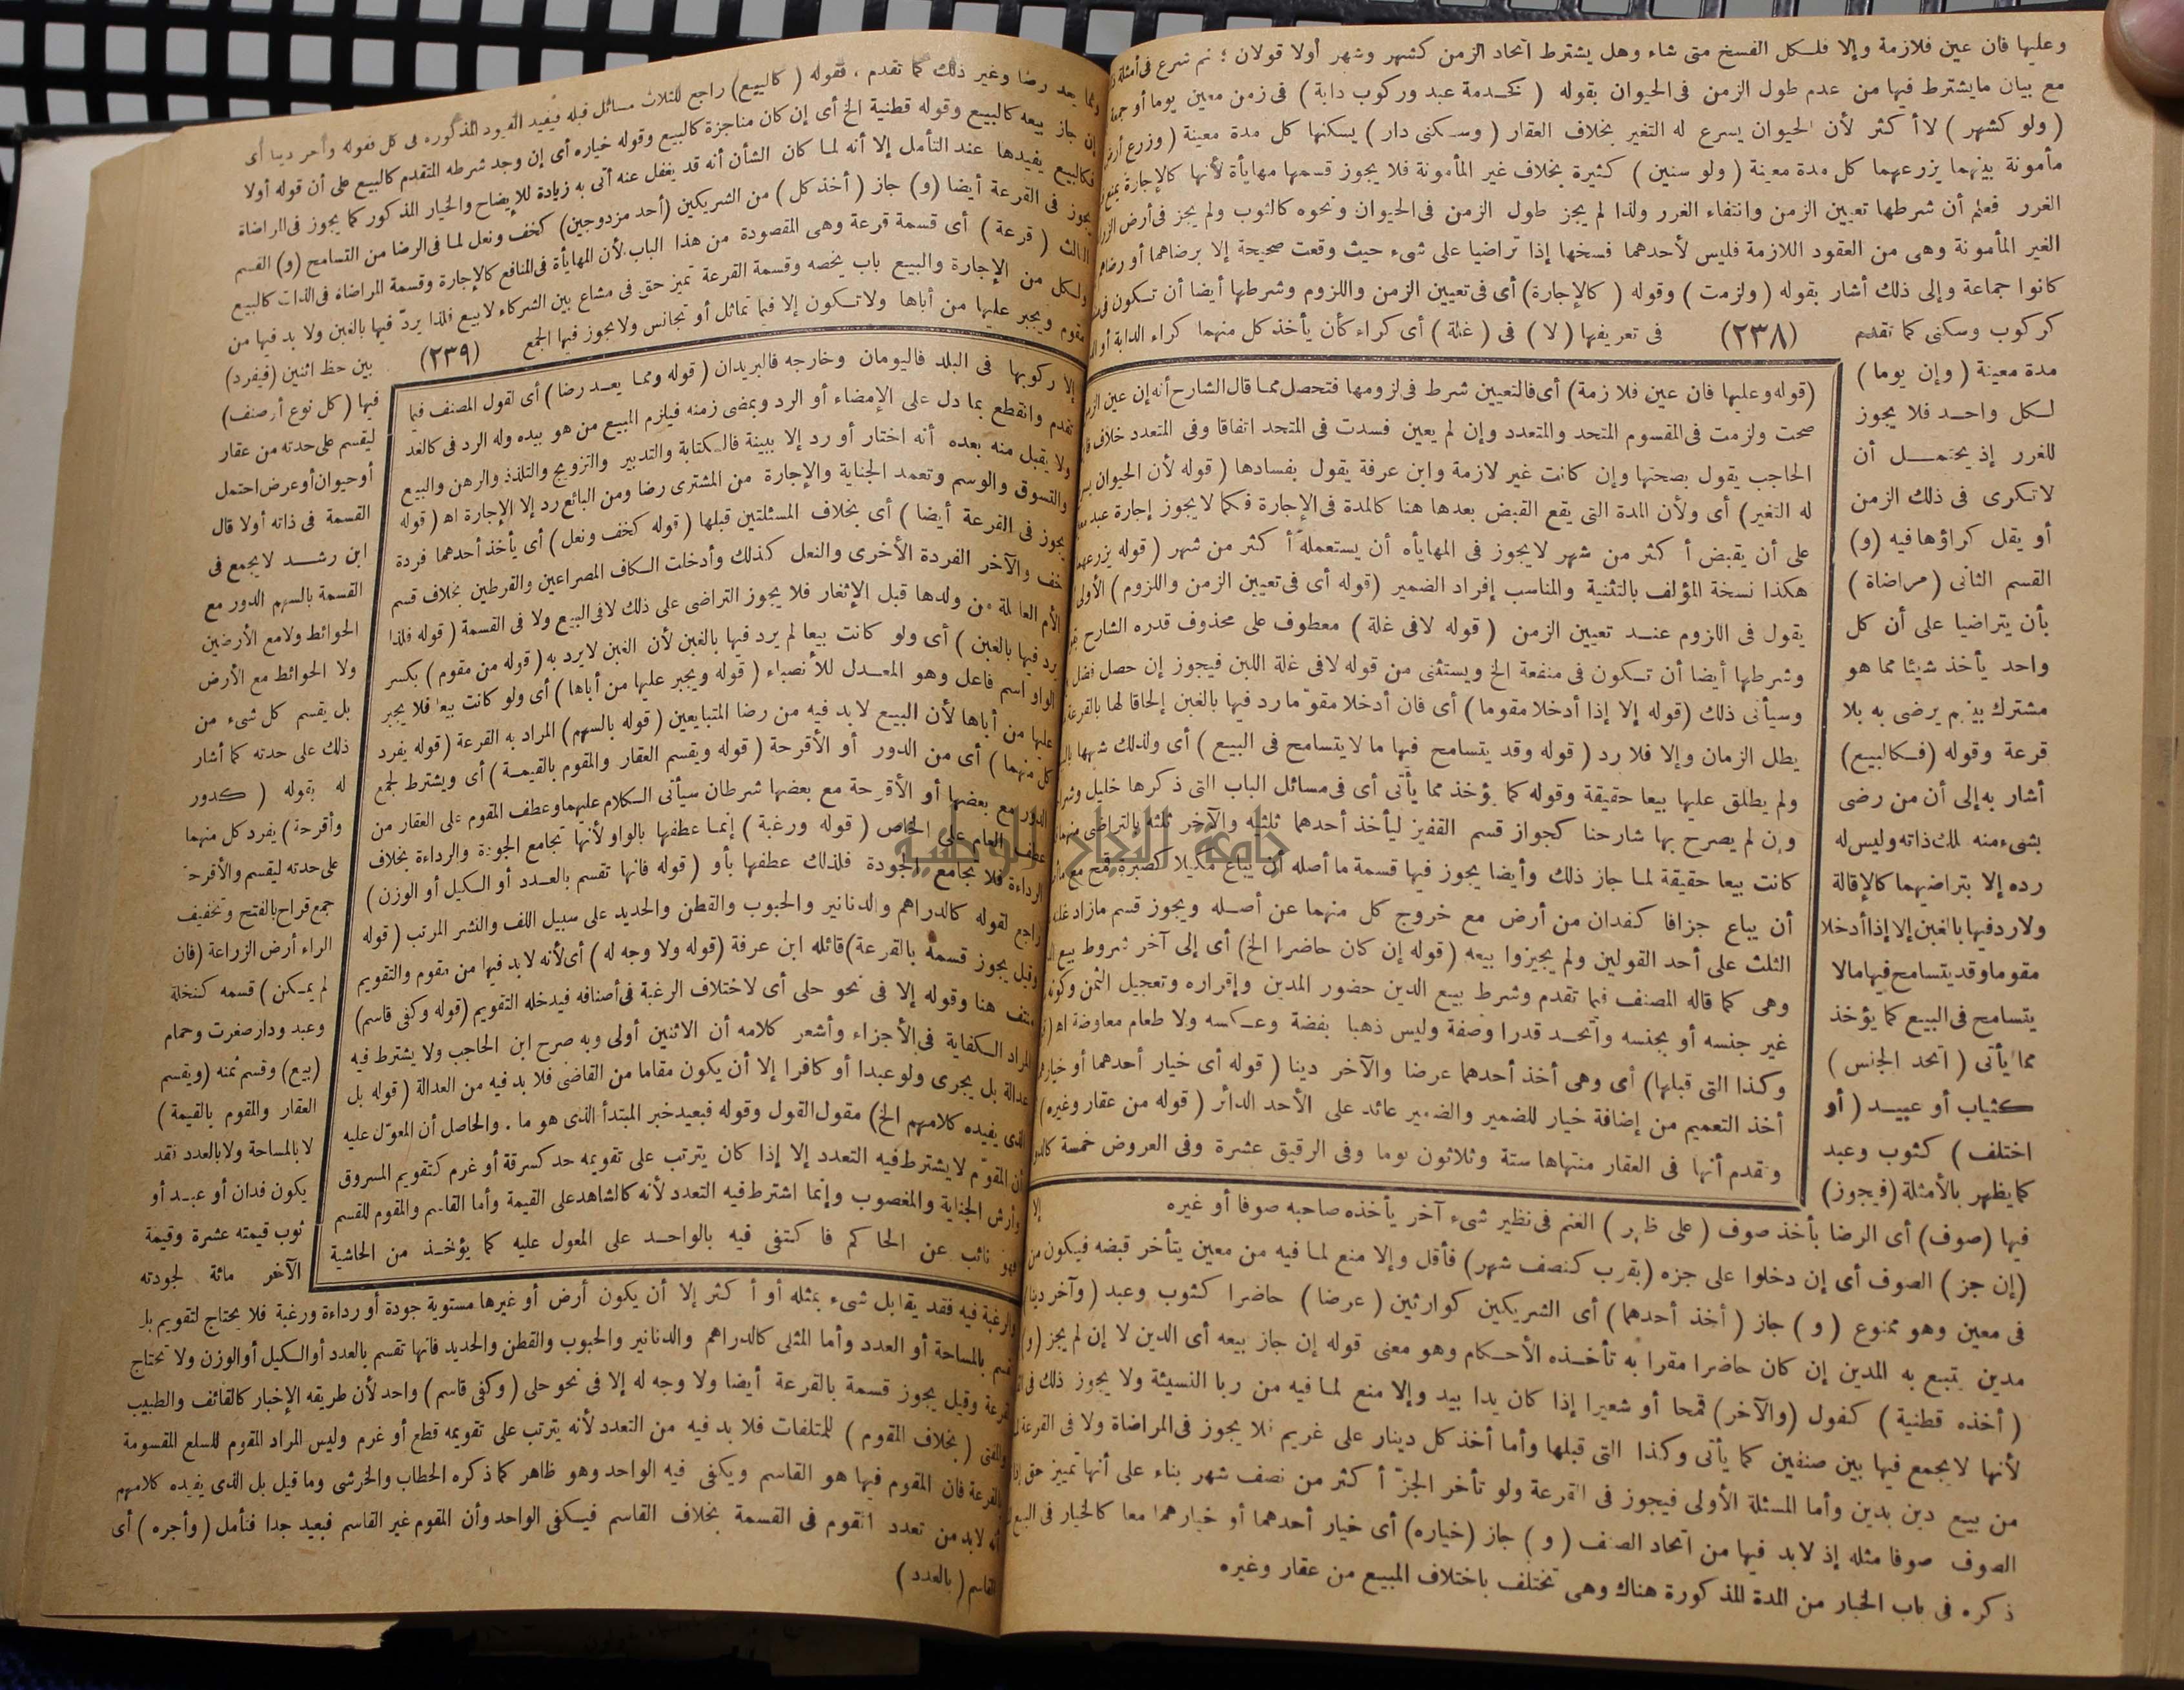 وعليها فان عين فلازمة وإلا فلكل الفسخ متى شاء وهل يشترط اتحاد الزمن كشهر وشهر أولا قولان ؛ ثم شرع فى أمثلة
مع بيان مايشترط فيها من عدم طول الزمن فى الحيوان بقوله ( كخدمة عبد وركوب دابة ) فى زمن معين يوما أو جمعة
( ولو كشهر ) لا أكثر لأن الحيوان يسرع له التغير بخلاف العقار ( وسكنى دار ) يسكنها كل مدة معينة ( وزرع أرض
مأمونة بينهما يزرعهما كل مدة معينة ( ولو سنين ) كثيرة بخلاف غير المأمونة فلا يجوز قسمها مهايأة لأنها كالإجارة يمنع
الغرر فعلم أن شرطها تعيين الزمن وانتفاء الغرر ولذا لم يجز طول الزمن فى الحيوان ونحوه كالثوب ولم يجز فى أرض
الغير المأمونة وهى من العقود اللازمة فليس لأحدهما فسخها إذا تراضيا على شىء حيث وقعت صحيحة إلا برضاهما أو
كانوا جماعة وإلى ذلك أشار بقوله ( ولزمت ) وقوله ( كالإجارة ) أى فى تعيين الزمن واللزوم وشرطها أيضا أن تكون فى
كركوب وسكنى كما تقدم (٢٣٨) فى تعريفها ( لا ) فى ( غلة ) أى كراء كأن يأخذ كل منهما كراء الدابة أو
مدة معينة ( وإن يوما )
لكل واحد فلا يجوز
للغرر إذ يحتمل أن
لاتكرى فى ذلك الزمن
أو يقل كراؤها فيه (و)
القسم الثانى ( مراضاة )
بأن يتراضيا على أن كل
واحد يأخذ شيئا مما هو
مشترك بينهم يرضى به بلا
قرعة وقوله (فكالبيع)
أشار به إلى أن من رضى
بشىء منه ملك ذاته وليس له
رده إلا بتراضيهما كالإقالة
ولا رد فيها بالغبن إلا إذا أدخلا
مقوما وقد يتسامح فيها مالا
يتسامح فى البيع كما يؤخذ
مما يأتى ( اتحد الجنس )
كثياب أو عبيد ( أو
اختلف ) كثوب وعبد
كما يظهر بالأمثلة (فيجوز)
(قوله وعليها فان عين فلازمة) أى فالتعيين شرط فى لزومها فتحصل مما قال الشارح أنه إن عين
صحت ولزمت فى المقسوم المتحد والمتعدد وإن لم يعين فسدت فى المتحد اتفاقا وفى المتعدد خلاف
الحاجب يقول بصحتها وإن كانت غير لازمة وابن عرفة يقول بفسادها ( قوله لأن الحيوان
له التغير) أى ولأن المدة التى يقع القبض بعدها هنا كالمدة فى الإجارة فكما لا يجوز إجارة عبد
على أن يقبض أكثر من شهر لايجوز فى المهايأه أن يستعمله أكثر من شهر ( قوله يزرعهما
هكذا نسخة المؤلف بالتثنية والمناسب إفراد الضمير (قوله أى فى تعيين الزمن واللزوم ) الأولى
يقول فى اللزوم عند تعيين الزمن ( قوله لافى غلة ) معطوف على محذوف قدره الشارح
وشرطها أيضا أن تكون فى منفعة الخ ويستثنى من قوله لافى غلة اللبن فيجوز إن حصل فضل
وسيأتى ذلك (قوله إلا إذا أدخلا مقوما ) أى فان أدخلا مقوّما رد فيها بالغبن إلحاقا لها بالقرعة
يطل الزمان وإلا فلا رد ( قوله وقد يتسامح فيها ما لا يتسامح فى البيع ) أى ولذلك شبهها
ولم يطلق عليها بيعا حقيقة وقوله كما يؤخذ مما يأتى أى فى مسائل الباب التى ذكرها خليل
وإن لم يصرح بها شارحنا كجواز قسم القفيز ليأخذ أحدهما ثلثيه والآخر ثلثه بالتراضى
كانت بيعا حقيقة لما جاز ذلك وأيضا يجوز فيها قسمة ما أصله أن يباع مكيلا كصبرة قمح مع
أن يباع جزافا كفدان من أرض مع خروج كل منهما عن أصله ويجوز قسم مازاد
الثلث على أحد القولين ولم يجيزوا بيعه ( قوله إن كان حاضرا الخ) أى إلى آخر شروط بيع
وهى كما قاله المصنف فيما تقدم وشرط بيع الدين حضور المدين وإقراره وتعجيل الثمن وكونه
غير جنسه أو بجنسه واتحد قدرا وصفة وليس ذهبا بفضة وعكسه ولا طعام معاوضة اه
وكذا التى قبلها) أى وهى أخذ أحدهما عرضا والآخر دينا ( قوله أى خيار أحدهما أو
أخذ التعميم من إضافة خيار للضمير والضمير عائد على الأحد الدائر ( قوله من عقار وغيره )
وتقدم أنها فى العقار منتهاها ستة وثلاثون يوما وفى الرقيق عشرة وفى العروض خمسة
إلا
فيها (صوف) أى الرضا بأخذ صوف ( على ظهر ) الغنم فى نظير شىء آخر يأخذه صاحبه صوفا أو غيره
(إن جز ) الصوف أى إن دخلوا على جزه (بقرب كنصف شهر) فأقل وإلا منع لما فيه من معين يتأخر قبضه فيكون
فى معين وهو ممنوع ( و ) جاز ( أخذ أحدهما ) أى الشريكين كوارثين ( عرضا ) حاضرا كثوب وعبد ( وآخر دينا
مدين يتبع به المدين إن كان حاضرا مقرا به تأخذه الأحكام وهو معنى قوله إن جاز بيعه أى الدين لا إن لم يجز (و)
( أخذه قطنية ) كفول (والآخر) قمحا أو شعيرا إذا كان يدا بيد وإلا منع لما فيه من ربا النسيئة ولا يجوز ذلك فى
لأنها لايجمع فيها بين صنفين كما يأتى وكذا التى قبلها وأما أخذ كل دينار على غريم فلا يجوز فى المراضاة ولا فى القرعة
من بيع دين بدين وأما المسئلة الأولى فيجوز فى القرعة ولو تأخر الجزّ أكثر من نصف شهر بناء على أنها تمييز حق
الصوف صوفا مثله إذ لابد فيها من اتحاد الصنف ( و ) جاز (خياره) أى خيار أحدهما أو خيارهما معا كالخيار فى البيع
ذكره فى باب الخيار من المدة المذكورة هناك وهى تختلف باختلاف المبيع من عقار وغيره
ومما يعد رضا وغير ذلك كما تقدم ، فقوله ( كالبيع) راجع للثلاث مسائل قبله فيفيد القيود المذكورة فى كل فقوله وآخر دينا أى
إن جاز بيعه كالبيع وقوله قطنية الخ أى إن كان مناجزة كالبيع وقوله خياره أى إن وجد شرطه المتقدم كالبيع على أن قوله أولا
فكالبيع يفيدها عند التأمل إلا أنه لما كان الشأن أنه قد يغفل عنه أتى به زيادة للإيضاح والخيار المذكور كما يجوز فى المراضاة
يجوز فى القرعة أيضا (و) جاز ( أخذ كل ) من الشريكين (أحد مزدوجين) كخف ونعل لما فى الرضا من التسامح (و) القسم
الثالث ( قرعة ) أى قسمة قرعة وهى المقصودة من هذا الباب لأن المهايأة فى المنافع كالإجارة وقسمة المراضاة فى الذات كالبيع
ولكل من الإجارة والبيع باب يخصه وقسمة القرعة تميز حق فى مشاع بين الشركاء لا بيع فلذا يردّ فيها بالغبن ولا بد فيها من
مقوم ويجبر عليها من أباها ولاتكون إلا فيما تماثل أو تجانس ولا يجوز فيها الجمع (٢٣٩)
بين حظ اثنين (فيفرد)
فيها ( كل نوع أو صنف)
ليقسم على حدته من عقار
أو حيوان أو عرض احتمل
القسمة فى ذاته أولا قال
ابن رشد لايجمع فى
القسمة بالسهم الدور مع
الحوائط ولا مع الأرضين
ولا الحوائط مع الأرض
بل يقسم كل شىء من
ذلك على حدته كما أشار
له بقوله ( كدور
وأقرحة ) يفرد كل منهما
على حدته ليقسم والأقرحة
جمع قراح بالفتح وتخفيف
الراء أرض الزراعة (فان
لم يمكن ) قسمه كنخلة
وعبد ودار صغرت وحمام
(بيع) وقسم ثمنه (ويقسم
العقار والمقوم بالقيمة )
لا بالمساحة ولا بالعدد فقد
يكون فدان أو عبد أو
ثوب قيمته عشرة وقيمة
الآخر مائة لجودته
إلا ركوبها فى البلد فاليومان وخارجه فالبريدان ( قوله ومما يعد رضا ) أى لقول المصنف فيما
تقدم وانقطع بما دل على الإمضاء أو الرد وبمضى زمنه فيلزم المبيع من هو بيده وله الرد فى كالغد
ولا يقبل منه بعده أنه اختار أو رد إلا ببينة فالكتابة والتدبير والتزويج والتلذذ والرهن والبيع
والتسوق والوسم وتعمد الجناية والإجارة من المشترى رضا ومن البائع رد إلا الإجارة اه ( قوله
يجوز فى القرعة أيضا ) أى بخلاف المسئلتين قبلها ( قوله كخف ونعل ) أى يأخذ أحدهما فردة
خف والآخر الفردة الأخرى والنعل كذلك وأدخلت الكاف المصراعين والقرطين بخلاف قسم
الأم العاقلة من ولدها قبل الإثغار فلا يجوز التراضى على ذلك لا فى البيع ولا فى القسمة ( قوله فلذا
يرد فيها بالغبن ) أى ولو كانت بيعا لم يرد فيها بالغبن لأن الغبن لايرد به ( قوله من مقوم ) بكسر
الواو اسم فاعل وهو المعدل للأنصباء ( قوله ويجبر عليها من أباها ) أى ولو كانت بيعا فلا يجبر
عليها من أباها لأن البيع لابد فيه من رضا المتبايعين ( قوله بالسهم ) المراد به القرعة ( قوله يفرد
كل منهما ) أى من الدور أو الأقرحة ( قوله ويقسم العقار والمقوم بالقيمة ) أى ويشترط لجمع
الدور مع بعضها أو الأقرحة مع بعضها شرطان سيأتى الكلام عليهما وعطف المقوم على العقار من
عطف العام على الخاص ( قوله ورغبة ) إنما عطفها بالواو لأنها تجامع الجودة والرداءة بخلاف
الرداءة فلا تجامع الجودة فلذلك عطفها بأو ( قوله فانها تقسم بالعدد أو الكيل أو الوزن )
راجع لقوله كالدراهم والدنانير والحبوب والقطن والحديد على سبيل اللف والنشر المرتب ( قوله
وقيل يجوز قسمه بالقرعة) قائله ابن عرفة (قوله ولا وجه له ) أى لأنه لابد فيها من مقوم والتقويم
منتف هنا وقوله إلا فى نحو حلى أى لاختلاف الرغبة فى أصنافه فيدخله التقويم (قوله وكفى قاسم)
المراد الكفاية فى الأجزاء وأشعر كلامه أن الاثنين أولى وبه صرح ابن الحاجب ولا يشترط فيه
عدالة بل يجرى ولو عبدا أو كافرا إلا أن يكون مقاما من القاضى فلا بد فيه من العدالة ( قوله بل
الذى يفيده كلامهم الخ) مقول القول وقوله فبعيد خبر المبتدأ الذى هو ما . والحاصل أن المعوّل عليه
أن المقوّم لايشترط فيه التعدد إلا إذا كان يترتب على تقويمه حد كسرقة أو غرم كتقويم المسروق
وأرش الجناية والمغصوب وإنما اشترط فيه التعدد لأنه كالشاهد على القيمة وأما القاسم والمقوم للقسم
فهو نائب عن الحاكم فاكتفى فيه بالواحد على المعول عليه كما يؤخذ من الحاشية
والرغبة فيه فقد يقابل شىء بمثله أو أكثر إلا أن يكون أرض أو غيرها مستوية جودة أو رداءة ورغبة فلا يحتاج لتقويم بل
تقسم بالمساحة أو العدد وأما المثلى كالدراهم والدنانير والحبوب والقطن والحديد فانها تقسم بالعدد أو الكيل أو الوزن ولا تحتاج
لقرعة وقيل يجوز قسمة بالقرعة أيضا ولا وجه له إلا فى نحو حلى ( وكفى قاسم ) واحد لأن طريقه الإخبار كالقائف والطبيب
والمفتى ( بخلاف المقوم ) للمتلفات فلا بد فيه من التعدد لأنه يترتب على تقويمه قطع أو غرم وليس المراد المقوم للسلع المقسومة
بالقرعة فان المقوم فيها هو القاسم ويكفى فيه الواحد وهو ظاهر كما ذكره الحطاب والخرشى وما قيل بل الذى يفيده كلامهم
أنه لابد من تعدد المقوم فى القسمة بخلاف القاسم فيكفى الواحد وأن المقوم غير القاسم فبعيد جدا فتأمل ( وأجره ) أى
القاسم ( بالعدد )
جامعة النجاح الوطنية